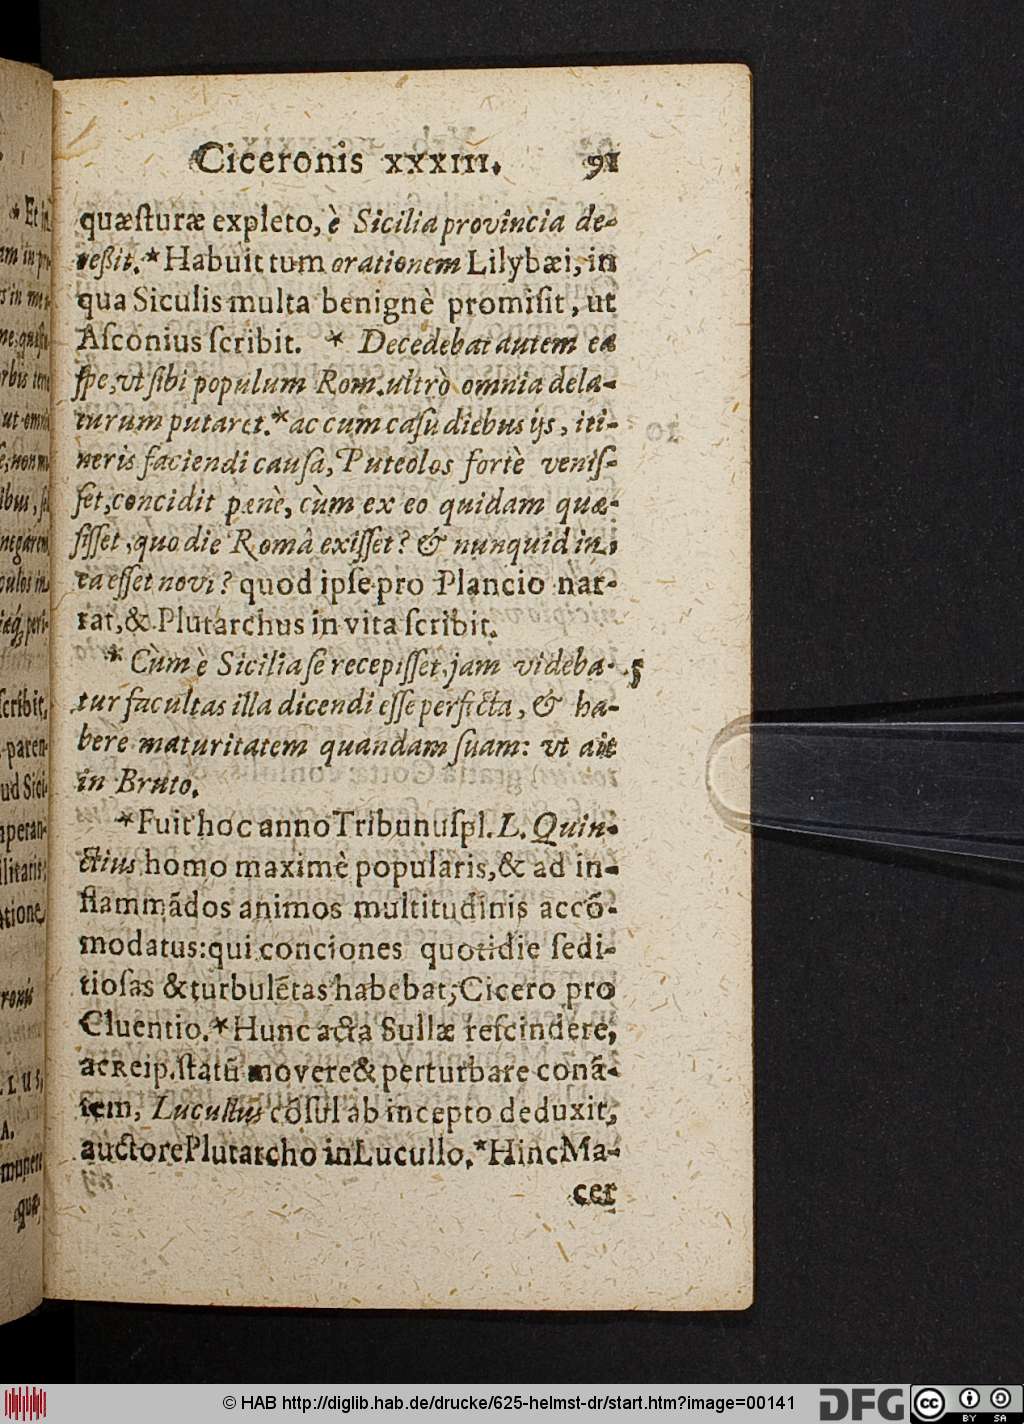 Ciceronis XXXIII. 91
quæſturæ expleto, è Sicilia provincia de-
ceßit.*Habuit tum orationem Lilybæi, in
qua Siculis multa benignè promiſit, ut
Aſconius ſcribit. * Decedebat autem ea
ſpe, vt ſibi populum Rom. ultrò omnia dela-
turum putaret.* ac cum caſu diebus ijs, iti-
neris faciendi cauſâ, Puteolos fortè veniſ-
ſet, concidit pænè, cùm ex eo quidam quæ-
ſiſſet, quo die Româ exiſſet? & nunquid in
ea eſſet novi? quod ipſe pro Plancio nar-
rat, & Plutarchus in vita ſcribit.
* Cùm è Sicilia ſe recepiſſet, jam videba- §
tur facultas illa dicendi eſſe perfecta, & ha-
bere maturitatem quandam ſuam: vt ait
in Bruto.
*Fuit hoc anno Tribunuſpl. L. Quin-
ctius homo maximè popularis, & ad in-
flammãdos animos multitudinis accõ-
modatus: qui conciones quotidie ſedi-
tioſas & turbulẽtas habebat, Cicero pro
Cluentio.*Hunc acta Sullæ reſcindere,
ac Reip. ſtatũ movere & perturbare conã-
tem, Lucullus cõſul ab incepto deduxit,
auctore Plutarcho in Lucullo.*Hinc Ma-
cer
* Et
negarem
ſcribit,
© HAB http://diglib.hab.de/drucke/625-helmst-dr/start.htm?image=00141
DFG
cc BY SA